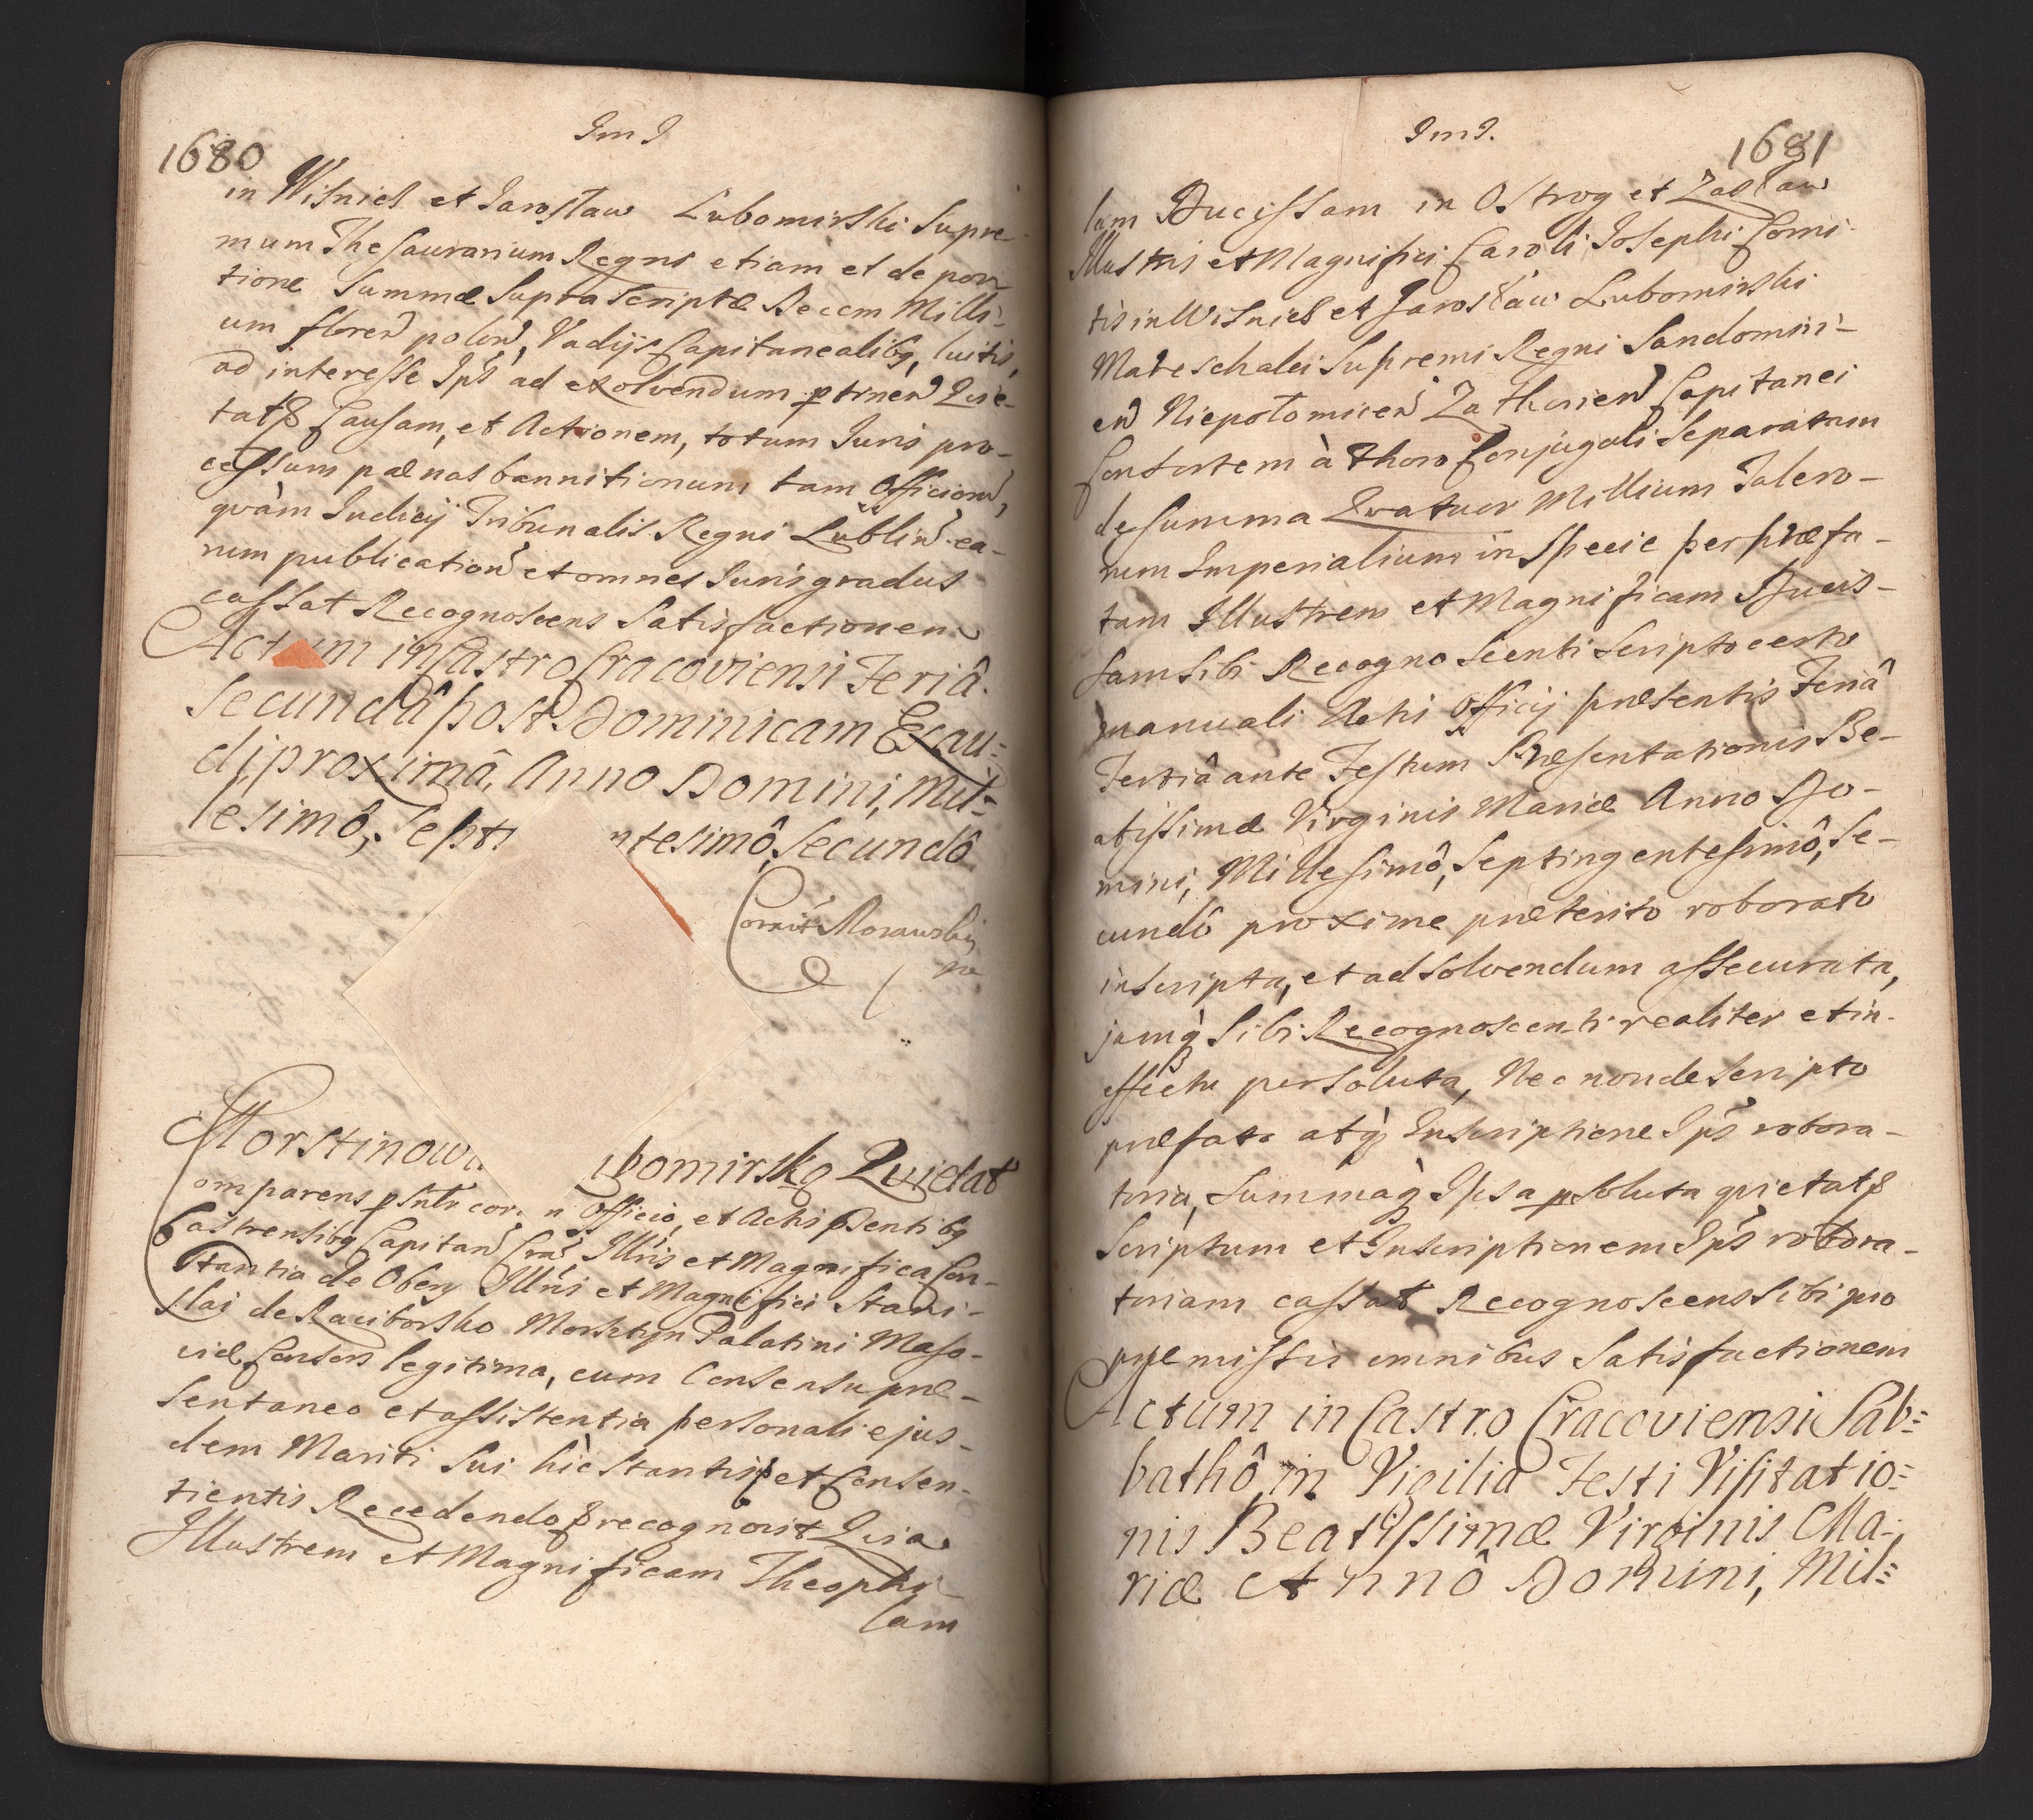 1680
Im I
in Wisnicz et Jarosław Lubomirski Supre-
mum Thesaurarium Regni etiam et de por-
tione Summæ Suprascriptæ Decem Milli-
um floren̄ polon̄, Vadijs Capitanealibq, luitis,
ad interesse Ips̄ ad exolvendum ptinen̄ Qvie-
tatȝ Causam, et Actionem, totum Juris pro-
cessum pænas bannitionum tam Officion̄,
qvàm Judicij Tribunalis Regni Lublin̄ ea-
rum publication̄ et omnes Juris gradus
cassat Recognoscens Satisfactionem
Actum in Castro Cracoviensi Feriâ
Secundâ post Dominicam Exau=
di proximâ, Anno Domini, Mil=
lesimô, Sept ntesimô, Secundô
Morawski
Morstinowa bomirską Qvietat
omparens pSntr cor n Officio, et Actis pSentibq
Castrensibq Capitan̄ Crac̄ Illris et Magnifica Con-
stantia de Obory Illris et Magnifici Stani-
slai de Raciborsko Morsztyn Palatini Maso-
viæ Consors legitima, cum Consensu præ-
sentaneo et assistentia personali ejus-
dem Mariti sui hìc stantis et Consen-
tientis Recedendo recognovit Qvia
Illustrem et Magnificam Theophi-
lam
Im I.
1681
lam Ducissam in Ostrog et Zasław
Illustris et Magnifici Caroli Josephi Comi-
tis in Wisnicz et Jarosław Lubomirski
Mareschalci Supremi Regni Sandomiri-
en̄ Niepołomicen̄ Zathorien̄ Capitanei
Consortem à Thoro Conjugali Separatam
de summa Qvatuor Millium Talero-
rum Imperialium in Specie per præfa-
tam Illustrem et Magnificam Ducis-
sam sibi Recognoscenti Scripto certo
manuali Actis Officij præsentis Feriâ
Tertiâ ante Festum Præsentationis Be-
atissimæ Virginis Mariæ Anno Do-
mini, Millesimô, Septingentesimô, Se-
cundô proxime præterito roborato
inscripta, et ad solvendum assecurata,
jamq̀ Sibi Recognoscenti realiter et in
effectu persoluta, Nec non de Scripto
præfato atq̀ Inscriptione Ips̄ robora-
toria, Summaq̀ Ipsa psoluta qvietatȝ
Scriptum et Inscriptionem Ips̄ robora-
toriam cassat Recognoscens sibi pro
præmissis omnibus Satisfactionem
Actum in Castro Cracoviensi Sab=
bathô in Vigilia Festi Visitatio=
nis Beatissimæ Virginis Ma=
riæ Annô Domini, Mil=